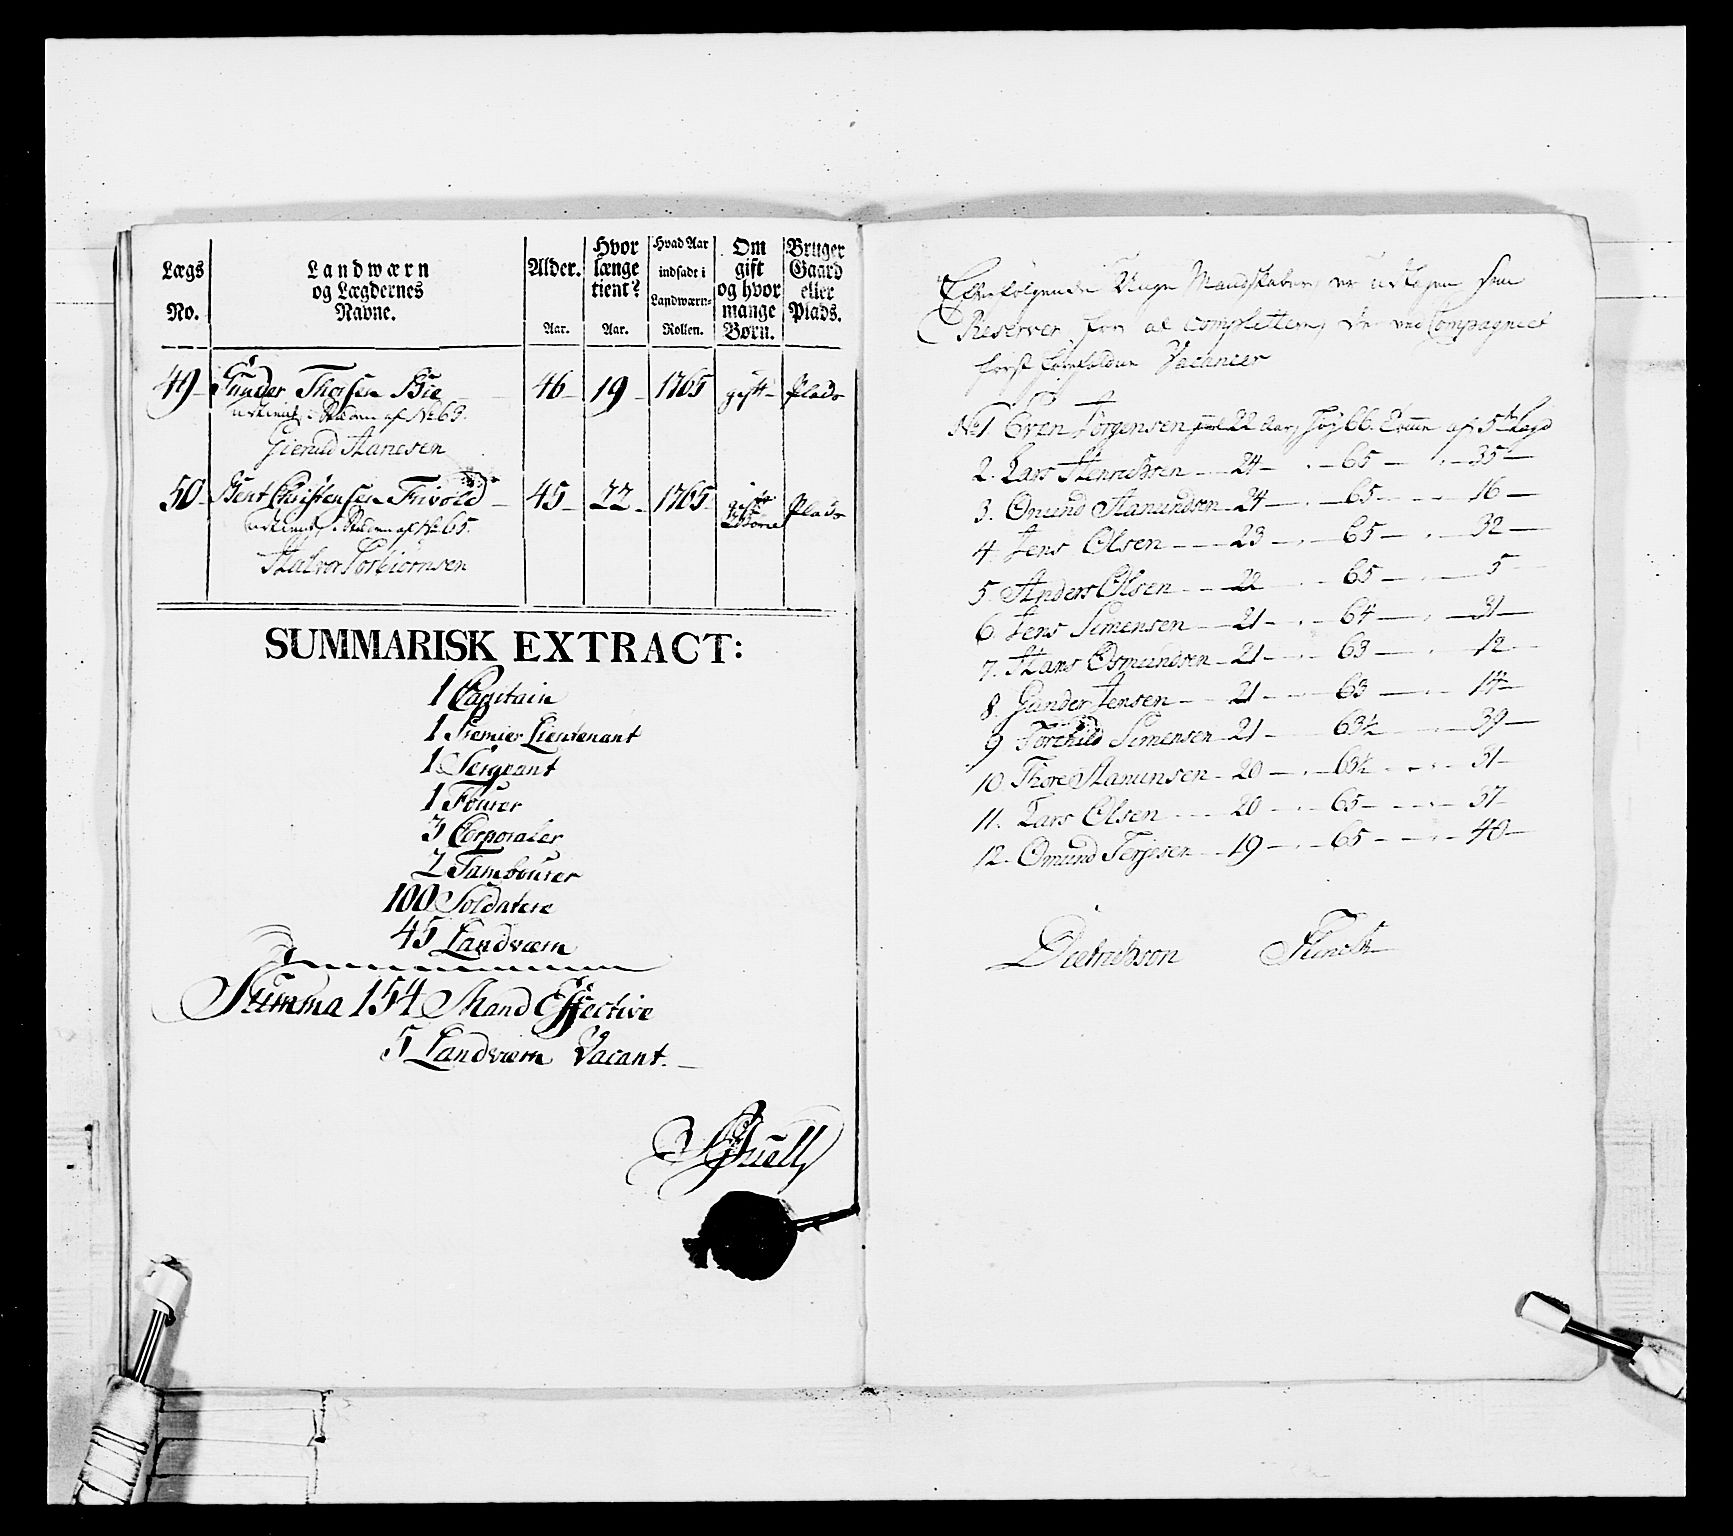 Lægs No. | Landwærn og Lægdernes Navne. | Alder. Aar. | Hvor længe tient? Aar. | Hvad Aar indsadt i Landwærn-Rollen. | Om gift og hvor mange Børn. | Bruger Gaard eller Plads.
49 Gunder Thorsen Bie 46 19 1765 gift Plads
af No 69.
Gieruld Hansen
50 Bent Christensen Frivold 45 22 1765 gift 2 Børn Plads
af No 65.
Halvor Torbiørnsen
SUMMARISK EXTRACT:
1 Capitain
1 Premier Lieutenant
1 Sergeant
1 Fourer
3 Corporaler
2 Tambourer
100 Soldatere
45 Landværn
Summa 154 Mand Effective
5 Landværn Vacant.
Efterfølgende Unge Mandskaber, er udtagen som
Reserver for at complettere, de ved Compagniet
først forefaldne Vacancer
No 1. Even Jørgensen 22 Aar, høy 66. Tom̄er af 5te Lægd
2. Lars Henrichsen 24 65 35
3. Omund Hamundsen 24 65 16
4. Jens Olsen 23 65 32
5. Anders Olsen 22 65 5
6. Jens Simensen 21 64 31
7. Hans Osmundsen 21 63 12
8. Gunder Jensen 21 63 14
9 Torchild Simensen 21 63½ 39
10. Thore Hamunsen 20 63½ 31
11. Lars Olsen 20 65 37
12. Omund Terjesen 19 65 40
Dietrichson